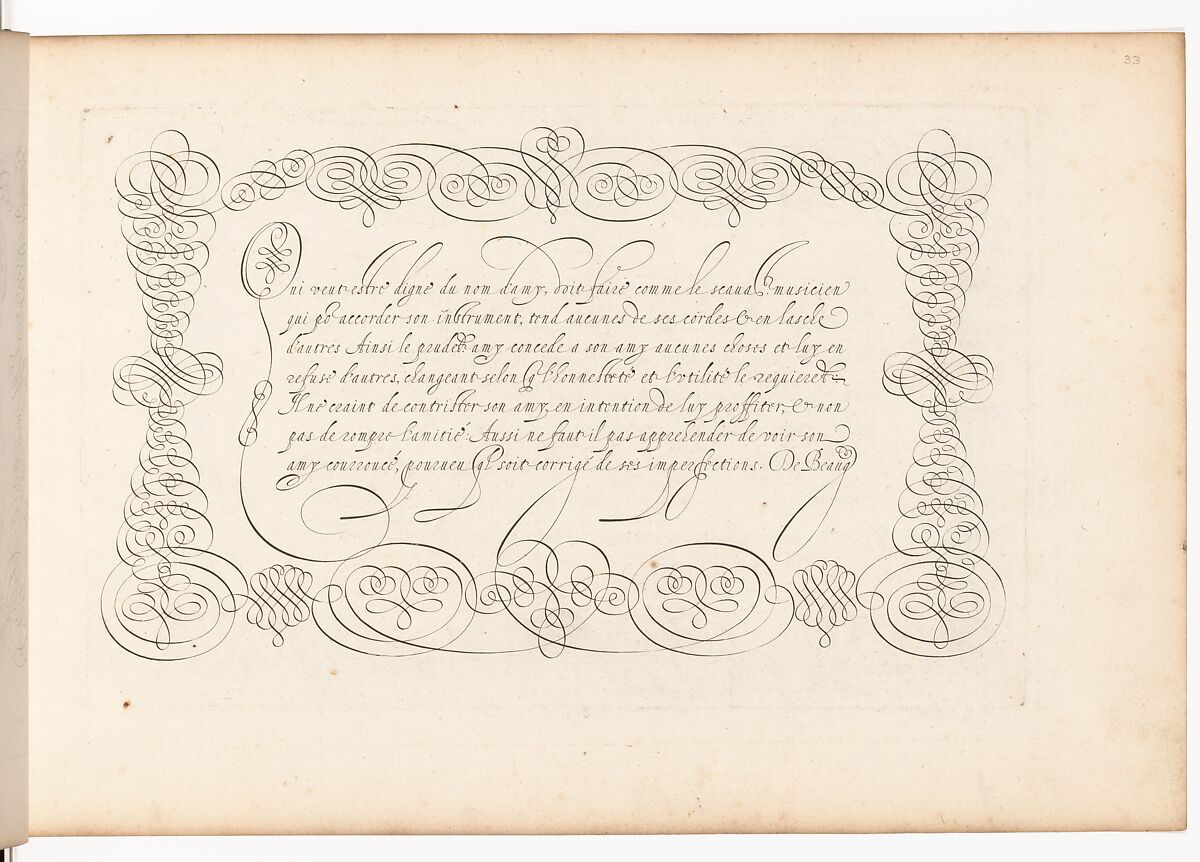 33
Qui veut estre digne du nom d'amy, doit faire comme le scauāt musicien
qui po' accorder son instrument, tend aucunes de ses cordes & en lasche
d'autres Ainsi le prudēt amy concede a son amy aucunes choses et luy en
refuse d'autres, changeant selon q̄ l'honnesteté et l'vtilité le requierēt.
Il ne craint de contrister son amy, en intention de luy proffiter, & non
pas de rompre l'amitié: Aussi ne faut il pas apprehender de voir son
amy courroucé, pourueu q̄l soit corrigé de ses imperfections. De Beaug